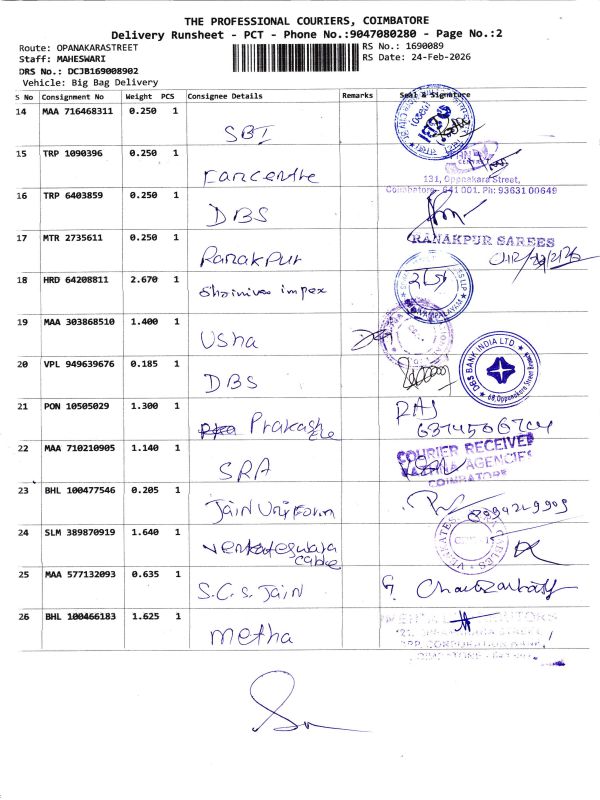 THE PROFESSIONAL COURIERS, COIMBATORE
Delivery Runsheet - PCT - Phone No.:9047080280 - Page No.:2
Route: OPANAKARASTREET
RS No.: 1690089
Staff: MAHESWARI
RS Date: 24-Feb-2026
DRS No.: DCJB169008902
Vehicle: Big Bag Delivery
S No Consignment No Weight PCS Consignee Details Remarks Seal & Signature
14 MAA 716468311 0.250 1 SBI
15 TRP 1090396 0.250 1 Fancentre
131, Oppanakara Street,
Coimbatore - 641 001. Ph: 93631 00649
16 TRP 6403859 0.250 1 DBS
17 MTR 2735611 0.250 1 Ranakpur RANAKPUR SAREES
18 HRD 64208811 2.670 1 Shrinivas impex
19 MAA 303868510 1.400 1 Usha
20 VPL 949639676 0.185 1 DBS
DBS BANK INDIA LTD
21 PON 10505029 1.300 1 Prakash RAJ
22 MAA 710210905 1.140 1 SRA COURIER RECEIVED
AGENCIES
COIMBATORE
23 BHL 100477546 0.205 1 Jain Uniform 8994219909
24 SLM 389870919 1.640 1 Venkateswara
Cable
25 MAA 577132093 0.635 1 S.C.S. Jain
26 BHL 100466183 1.625 1 metha